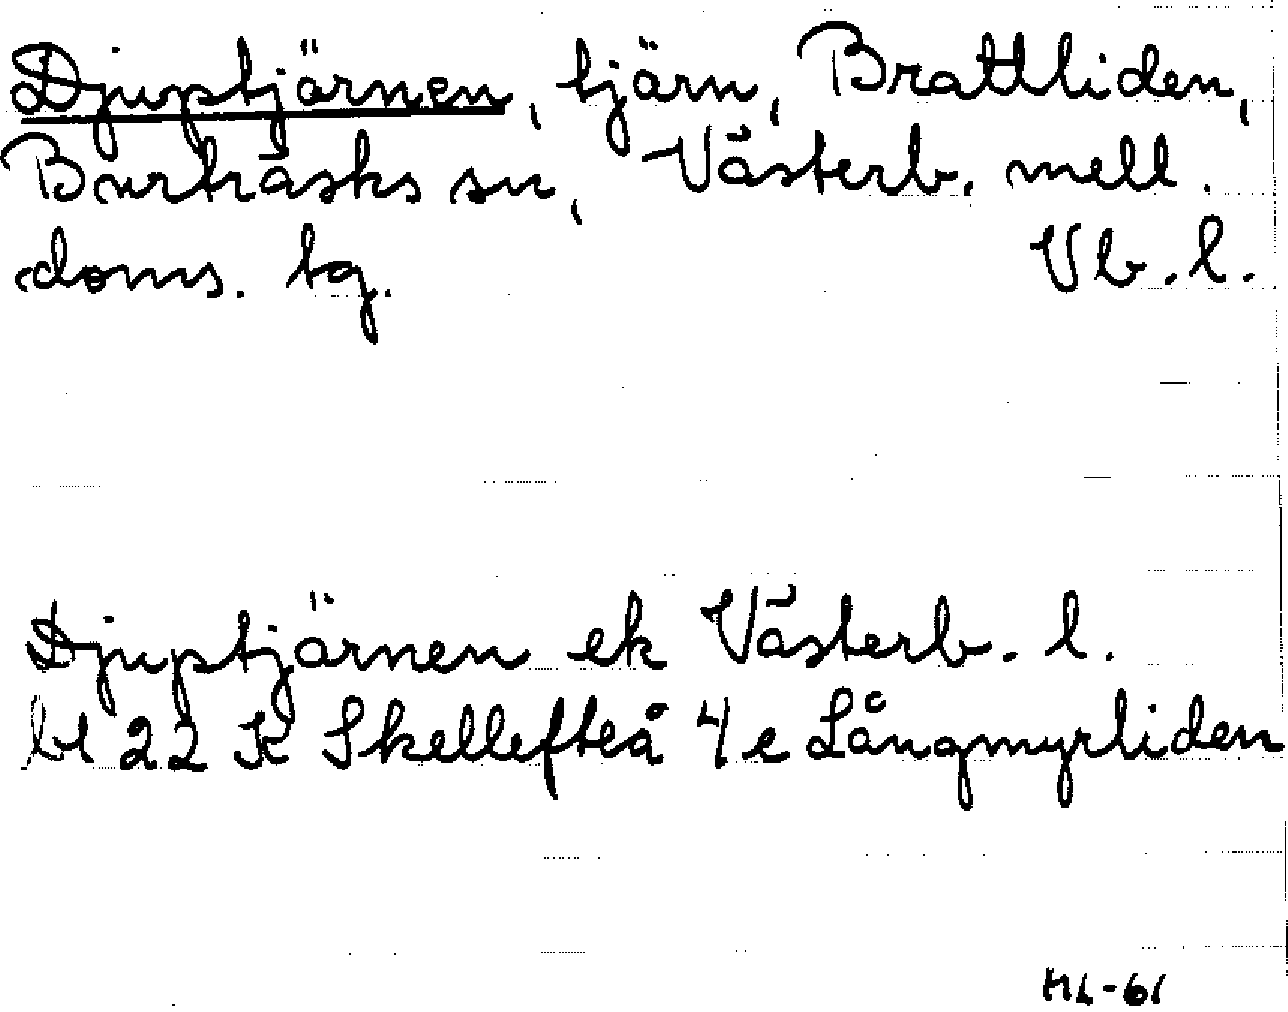 Djuptjärnen, tjärn, Brattliden,
Burträsks sn, Västerb. mell.
doms. tg. Vb. l.
Djuptjärnen ek Västerb. l.
bl 22 K Skellefteå 4 e Långmyrliden
HL-61